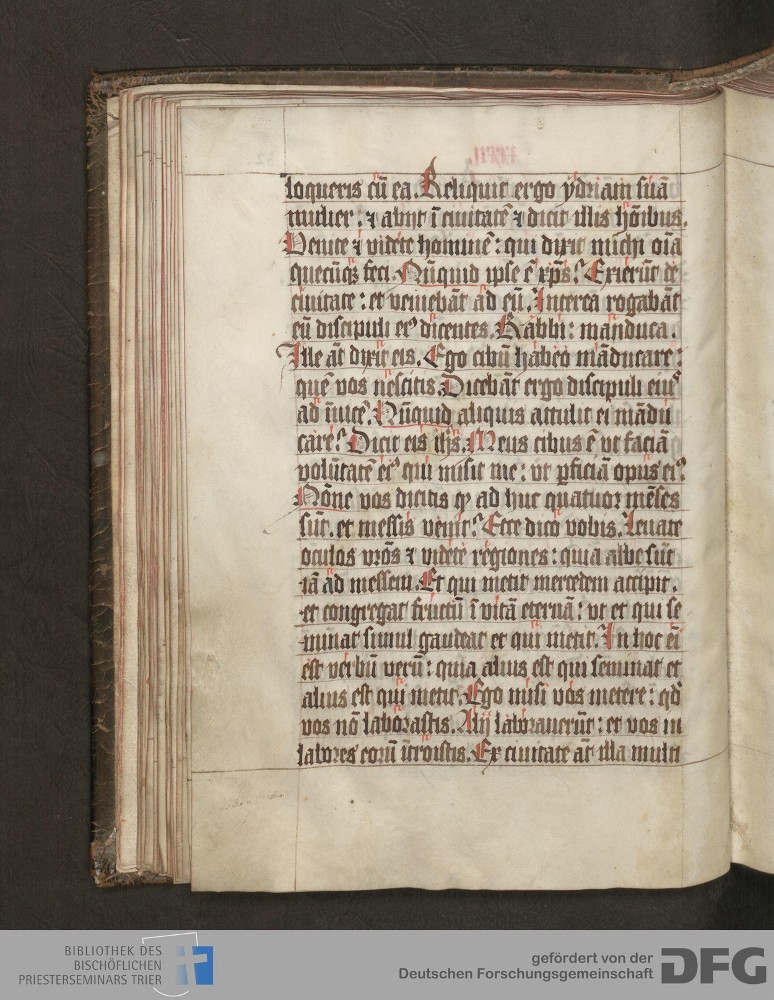 loqueris cū ea. Reliquit ergo ydriam suā
mulier: ⁊ abijt ī ciuitatē ⁊ dicit illis hōibus.
Venite ⁊ videte hominē: qui dixit michi oīa
quecūqꝫ feci. Nūnquid ipse ē xp̄s? Exierūt de
ciuitate: et veniebāt ad eū. Interea rogabāt
eū discipuli eiꝰ dicentes. Rabbi: manduca.
Ille āt dixit eis. Ego cibū habeo māducare:
quē vos nescitis. Dicebāt ergo discipuli eiuꝰ
ad īuicē. Nūnquid aliquis attulit ei mādu
care? Dicit eis ih̄s. Meus cibus ē vt faciā
volūtatē eiꝰ qui misit me: vt ꝑficiā opus eiꝰ
Nōne vos dicitis ꝙ ad huc quatuor mēses
sūt. et messis venit? Ecce dico vobis. leuate
oculos vr̄os ⁊ videte regiones: quia albe sūt
iā ad messem. Et qui metit mercedem accipit.
et congregat fructū ī vitā eternā: vt et qui se
minat simul gaudeat et qui metit. In hoc eī
est verbū verū: quia alius est qui seminat et
alius est qui metit. Ego misi vos metere: qd̄
vos nō laborastis. Alij laborauerūt: et vos in
labores eorū ītroistis. Ex ciuitate āt illa multi
BIBLIOTHEK DES
BISCHÖFLICHEN
PRIESTERSEMINARS TRIER
gefördert von der
Deutschen Forschungsgemeinschaft
DFG